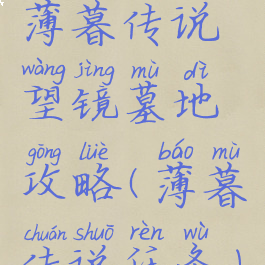 薄暮传说
wàng jìng mù dì
望镜墓地
gōng lüè báo mù
攻略(薄暮
chuán shuō rèn wù
传说任务)